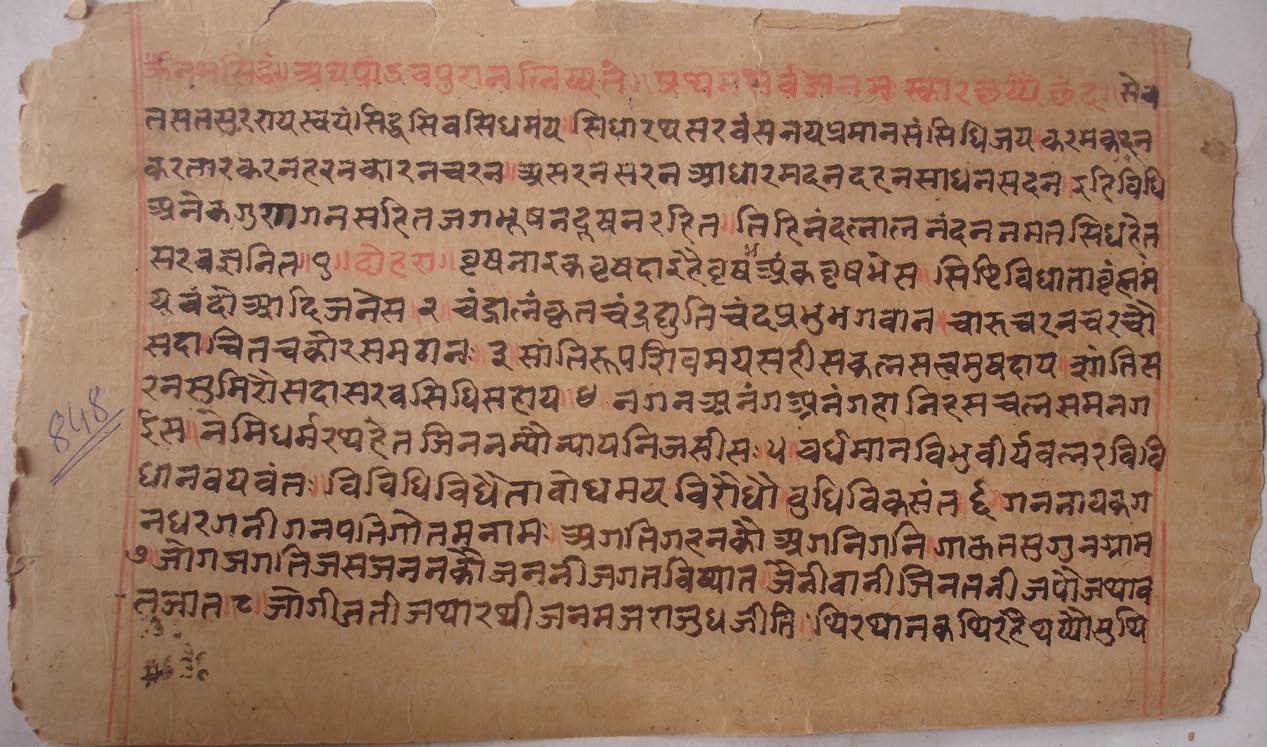 ॐनमसिद्धं॥ अथपांडवपुरानलिष्यते॥ प्रथमसर्वजनमस्कारछप्पैछंद॥ सेव
तसतसुरराय स्वयं।सिद्ध सिव सिधमय॥ सिधारथ सरवंस नयप्रमान सं।सिधिजय।करमकदन
करतार करनहरन कारनचरन॥ असरनसरन आधार मदनदहनसाधनसदन॥ इहिविधि
अनेक गुरागनसहित जगभूषनदूषनरहित॥ तिहिनंदलालनंदननमतसिधहेत
सरवज्ञनित॥१॥दोहरा॥ वृषनाइक वृषदाइहै वृषअंक वृषभेस॥सिष्टिविधाता
वंदौआदिजनेस॥२॥चंद्रालंकृत चंद्रदुति चंद्रप्रभुभगवान॥चारुचरनचरचौ
सदा।चितचकोरसमठान॥३॥सांतिरूप शिवमयसही सकल सुषदाय॥सांतिस
रनसुमिरौसदासरवसिधिसहाय॥४॥नगनअनंगअनंगहानिहसचलनसमनग
ईस॥नेमिधर्मरथहेत जिननन्यौन्यापनिजसीस॥५॥वर्धमानविभुवीर्यवलरविवि
धानवयवंत॥विविधिविधैतावोधमय विरोधौवुधिविकसंत॥६॥गननायकग
नधरगनीगनपतिगोतमनाम॥ अगतिगहनकौअगनिगनि।गाकतसुगुनग्राम
७॥जोगजगतिजसजननकौजननीजगतविष्यात॥जैनीवानीजिनतनी जपौजथाव
तजात॥८॥जोगीजतीजथारथीजनमजराजुधजीति॥थिरथानकथिरहैथप्पौसुथि
848